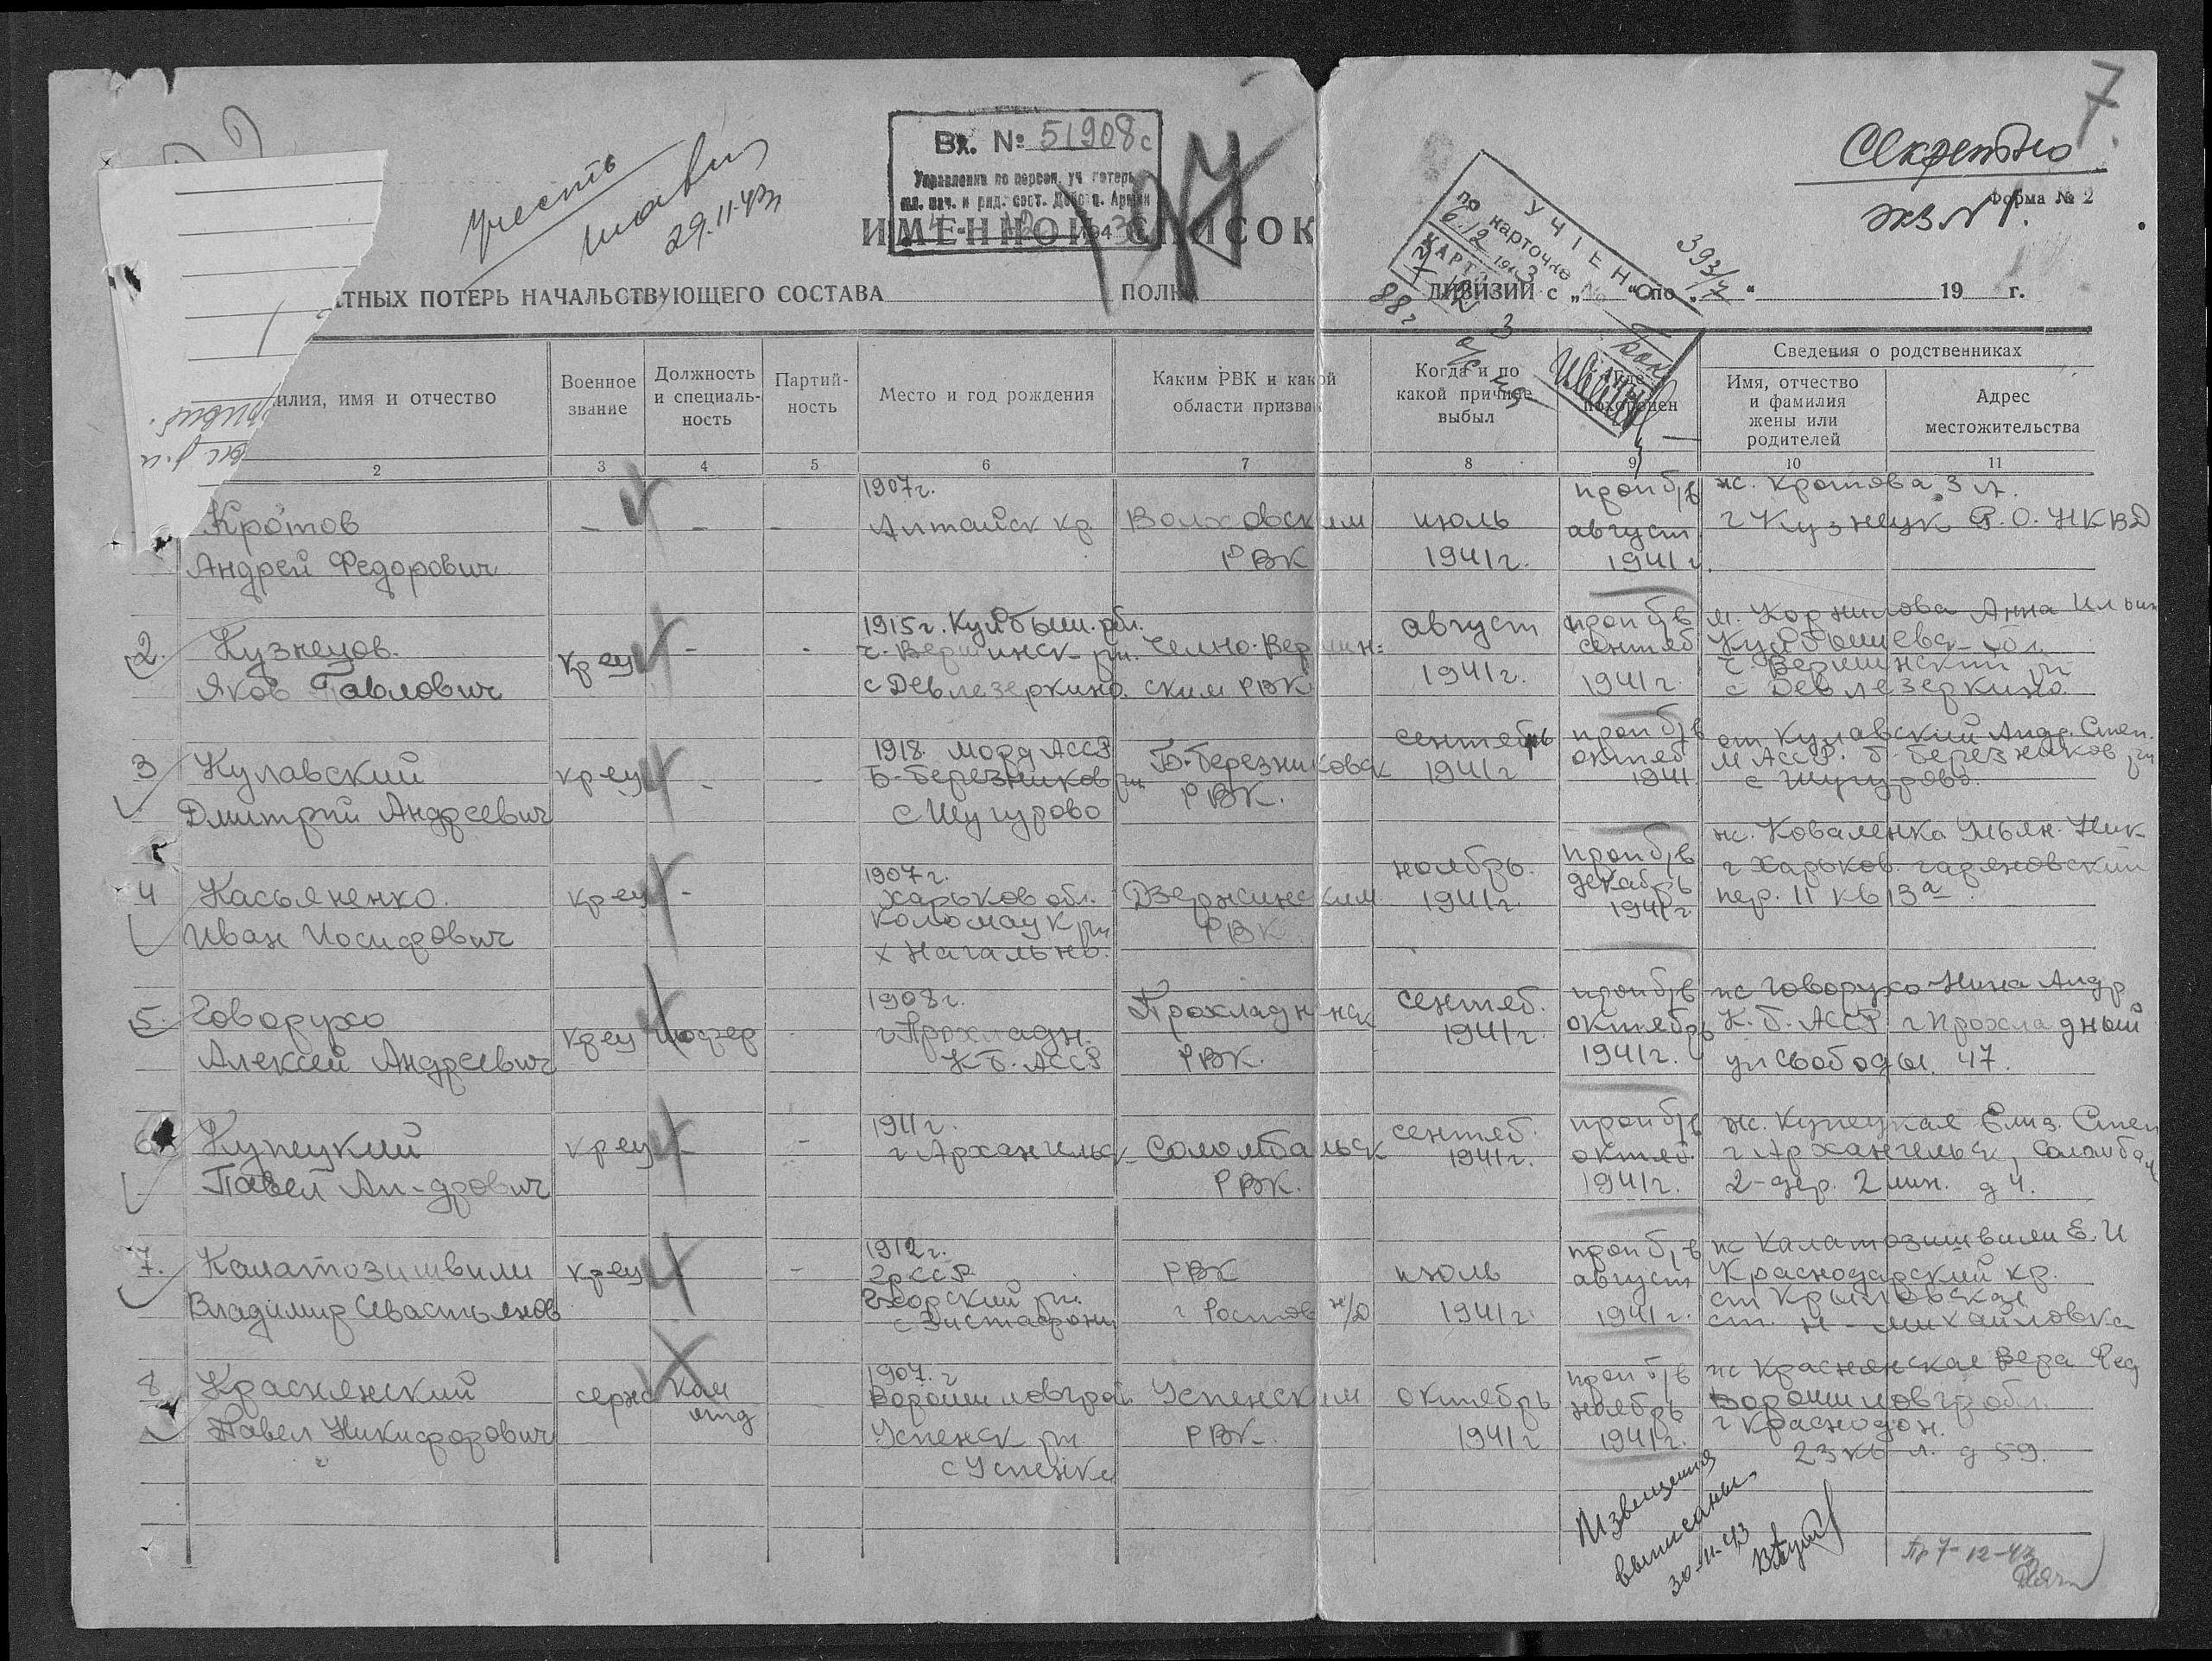 7
Секретно
Форма № 2
экз № 1.
Учесть
29.11.43г
Вх. № 51908с
Управления по персон. уч. потерь
мл. нач. и ряд. сост. Действ. Армии
ИМЕННОЙ СПИСОК
УЧТЕН
по карточке
393/7
АТНЫХ ПОТЕРЬ НАЧАЛЬСТВУЮЩЕГО СОСТАВА ПОЛКА ДИВИЗИИ с „ “ по „ “ 19 г.
илия, имя и отчество
Военное звание
Должность и специаль- ность
Партий- ность
Место и год рождения
Каким РВК и какой области призван
Когда и по какой причине выбыл
Где похоронен
Сведения о родственниках
Имя, отчество и фамилия жены или родителей
Адрес местожительства
2 3 4 5 6 7 8 9 10 11
Кротов
Андрей Федорович
- - -
1907г.
Алтайск кр.
Волховским
РВК
июль
1941г.
проп б/в
август
1941г.
ж. Кротова З А.
г Кузнецк Р.О. НКВД
2.
Кузнецов.
Яков Павлович
кр-ец - -
1915г. Куйбыш. обл.
ч. Вершинск рн.
с Девлезеркино.
Челно-Вершин-
ским РВК
август
1941г.
проп б/в
сентяб
1941г.
м. Корнилова Анна Ильин
Куйбышевск. обл.
ч Вершинский рн
с Девлезеркино.
3
Кулавский
Дмитрий Андреевич
кр-ец - -
1918. Морд АССР
Б-Березников рн
с Шугурово
Б-Березниковск
РВК.
сентябрь
1941г
проп б/в
октяб
1941
от Кулавский Андр. Степ.
М АССР. Б-Березников рн
с Шугурово.
4
Касьяненко.
Иван Иосифович
кр-ец -
1907г.
Харьков обл.
Коломацк рн
х Нагально.
Дзержинским
РВК
ноябрь.
1941г.
проп б/в
декабрь
1941г
ж. Коваленка Ульян. Ник
г Харьков.
пер. 11 кв 13а
5.
Говорухо
Алексей Андреевич
кр-ец шофер
1908г.
г Прохладн.
К Б. АССР
Прохладненск
РВК.
сентяб.
1941г.
проп б/в
октябрь
1941г.
ж Говорухо Нина Андр
К. Б. АССР г Прохладный
ул Свободы. 47.
6
Купецкий
Павел Ал-дрович
кр-ец - -
1911г.
г Архангельск
Соломбальск
РВК.
сентяб.
1941г.
проп б/в
октяб.
1941г.
ж. Купецкая Елиз. Степ
г Архангельск, Соломбал
2-дер. 2 лин. д 4.
7.
Калатозишвили
Владимир Севастьянов
кр-ец -
1912г.
Гр ССР
РВК
г Ростов н/Д
июль
1941г.
проп б/в
август
1941г.
ж Калатозишвили Е. И
Краснодарский кр.
ст Крыловская
ст. Н-Михайловка
8
Краснянский
Павел Никифорович
серж
ком
отд
1907. г
Ворошиловград
Успенск рн
с Успенка
Успенским
РВК.
октябрь
1941г
проп б/в
ноябрь
1941г.
ж Краснянская Вера Фед
Ворошиловгр обл.
г Краснодон.
23 кв л. д 59.
Извещения
выписаны
30-11-43
7-12-43